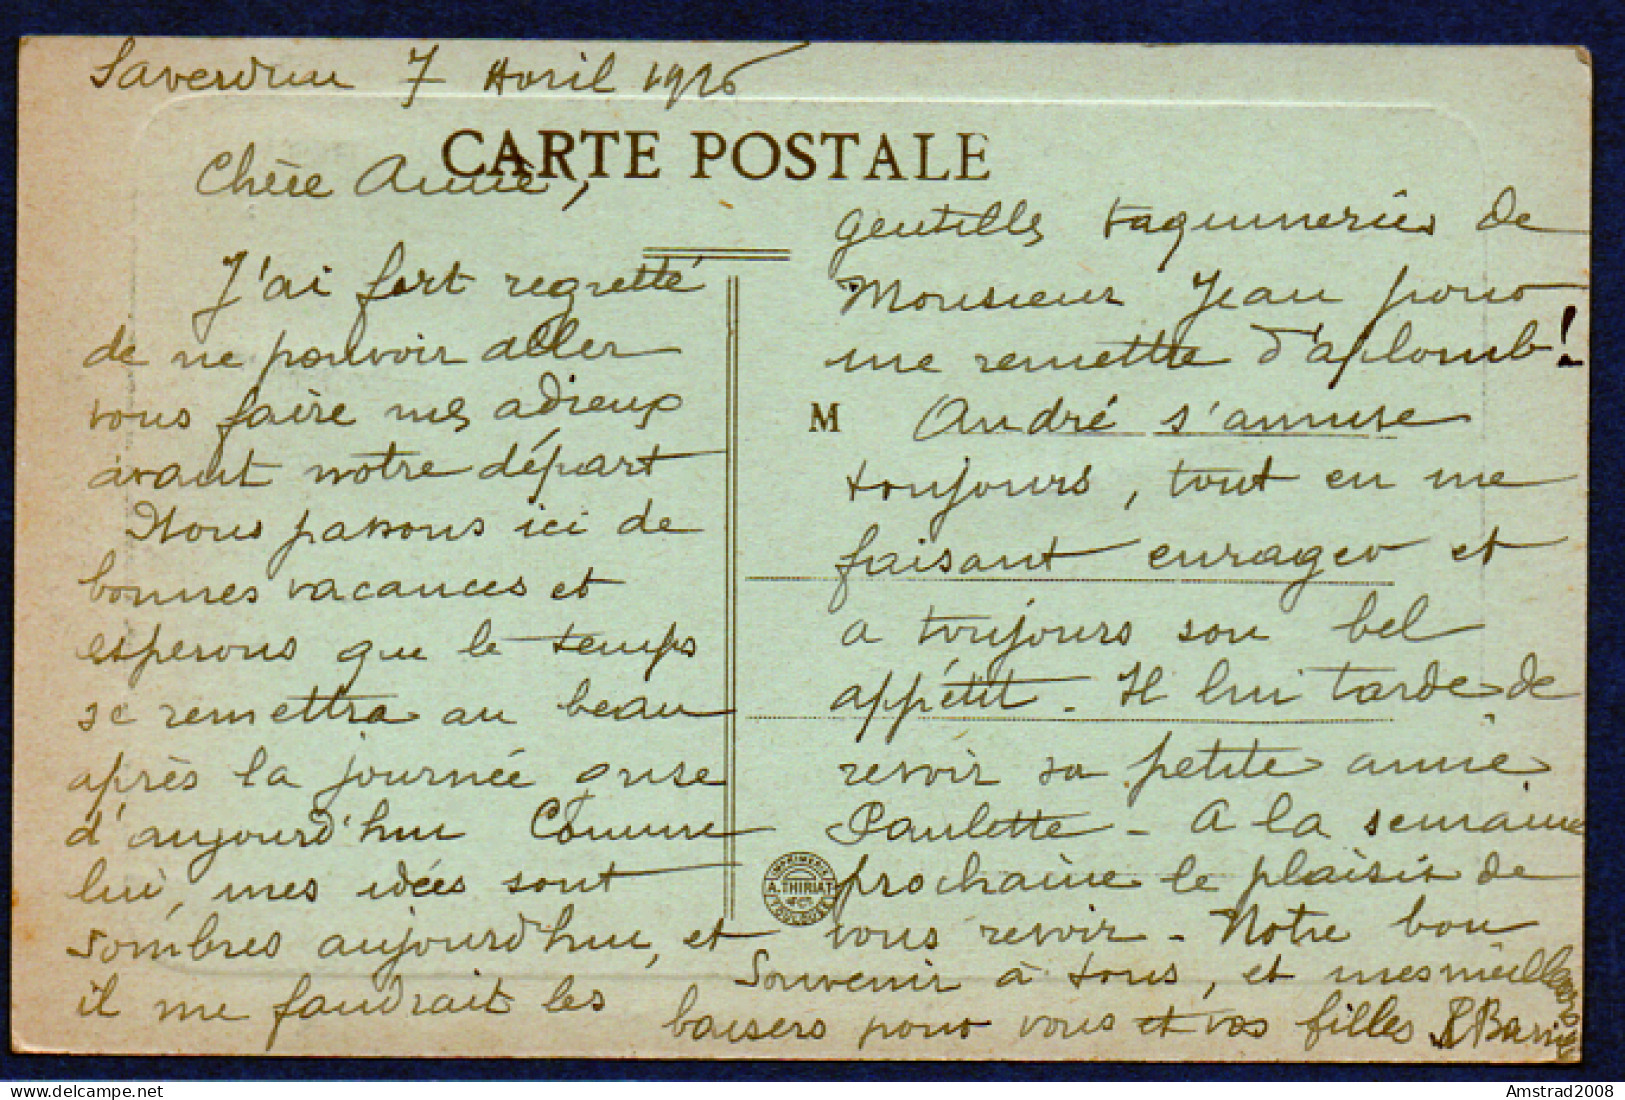 Saverdun 7 Avril 1926
CARTE POSTALE
Chère Amie,
J'ai fort regretté
de ne pouvoir aller
vous faire mes adieux
avant notre départ
Nous passons ici de
bonnes vacances et
esperons que le temps
se remettra au beau
après la journée grise
d'aujourd'hui Comme
lui, mes idées sont
sombres aujourd'hui, et
il me faudrait les
gentilles taquineries de
Monsieur Jean pour
me remettre d'aplomb!
M
André s'amuse
toujours, tout en me
faisant enrager et
a toujours son bel
appétit - Il lui tarde de
revoir sa petite amie
Paulette - A la semaine
prochaine le plaisir de
vous revoir - Notre bon
souvenir à tous, et mes meilleurs
baisers pour vous et vos filles
IMPRIMERIE
A. THIRIAT
TOULOUSE
Amstrad2008